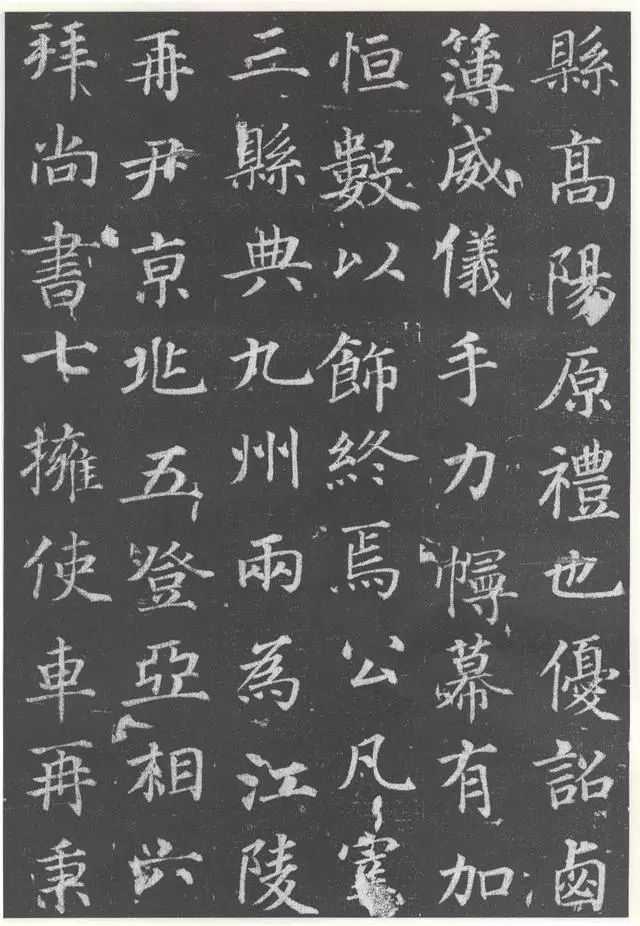 縣高陽原禮也優詔鹵
簿威儀手力幕有加
恒數以飾終焉公凡宰
三縣典九州兩為江陵
再尹京兆五登亞相六
拜尚書七擁使車再秉